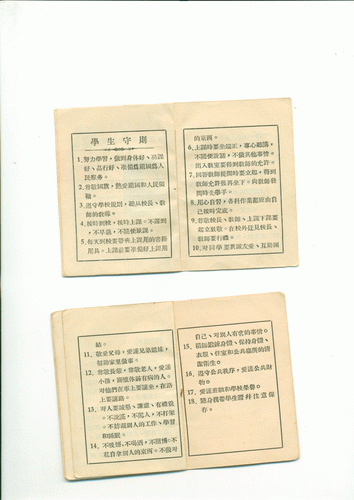 學生守則
1、努力學習，做到身体好、功課
好、品行好、準備爲祖國爲人
民服务。
2、尊敬國旗，熱愛祖國和人民領
袖。
3、遵守學校規則，聽从校長、教
師的教導。
4、按時到校，按時上課。不遲到
，不早退，不隨便缺課。
5、每天到校要帶齊上課用的書籍
用具。上課前要準備好上課用
的東西。
6、上課時要坐端正，專心聽講，
不隨便說話，不做其他事情。
出入教室要得到教師的允許。
7、回答教師提問時要立起，得到
教師允許後再坐下。向教師發
問時先舉手。
8、用心自習，各科作業都应由自
己按時完成。
9、尊敬校長、教師、上課下課要
起立致敬。在校外迂見校長、
教師要行礼。
10、对同學要真誠友愛、互助團
結。
11、敬愛父母，愛護兄弟姐妹，
幫助家里做事。
12、尊敬長輩，尊敬老人，愛護
小孩，關懷体弱有病的人。
对他們在車上要讓坐，在路
上要讓路。
13、对人要誠懇、謙虛、有禮貌
。不說謊，不罵人，不打架
。不妨碍別人的工作、學習
和睡眠。
14、不吸烟、不喝酒，不賭博。不
私自拿別人的東西。不做对
自己、对別人有害的事情。
15、積極鍛鍊身體、保持身體、
衣服、住室和公共塲所的清
潔衛生。
16、遵守公共秩序，愛護公共財
物。
17、愛惜班級和學校榮譽。
18、隨身携帶學生證幷注意保
存。